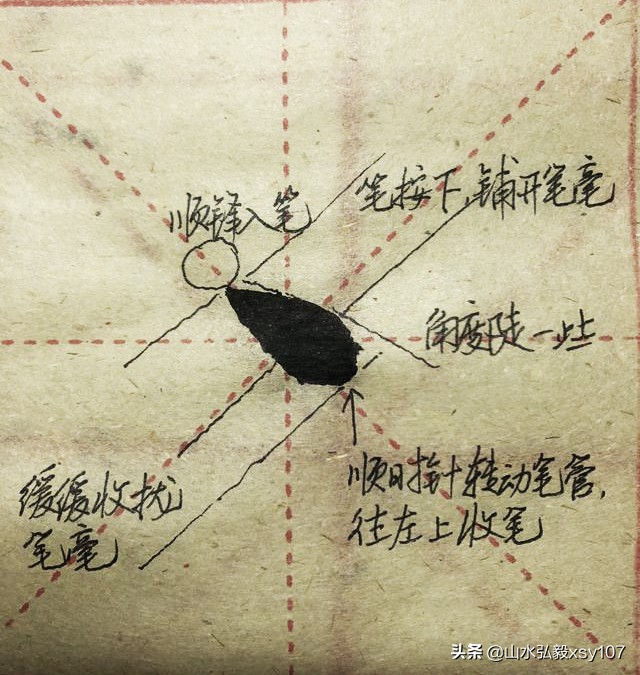 顺锋入笔
笔按下铺开笔毫
角度陡一些
缓缓收拢
笔毫
顺时针转动笔管,
往左上收笔
头条 @山水弘毅xsy107